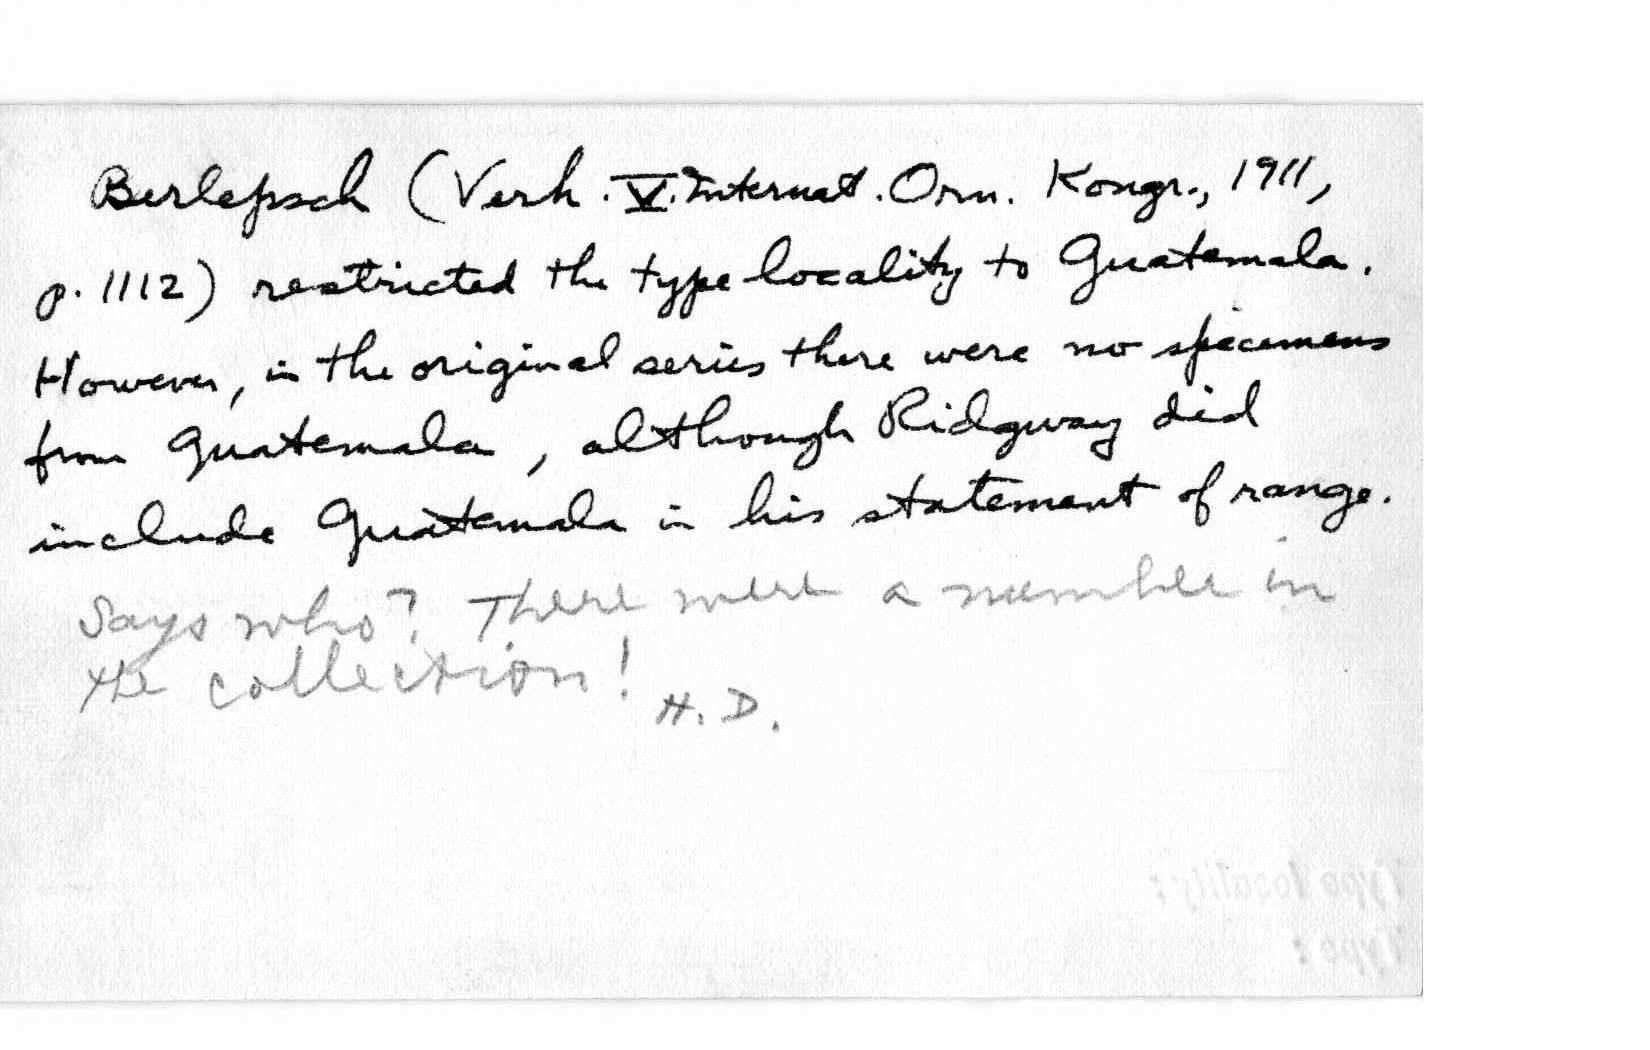 Berlepsch (Verh. V. Internat. Orn. Kongr., 1911,
p. 1112) restricted the type locality to Guatemala.
However, in the original series there were no specimens
from Guatemala, although Ridgway did
include Guatemala in his statement of range.
Says who? There were a number in
the collection!
H. D.
Type locality:
Type: